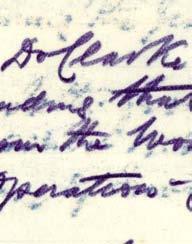 Dr Clarke
uding that
om the Wo
Operation